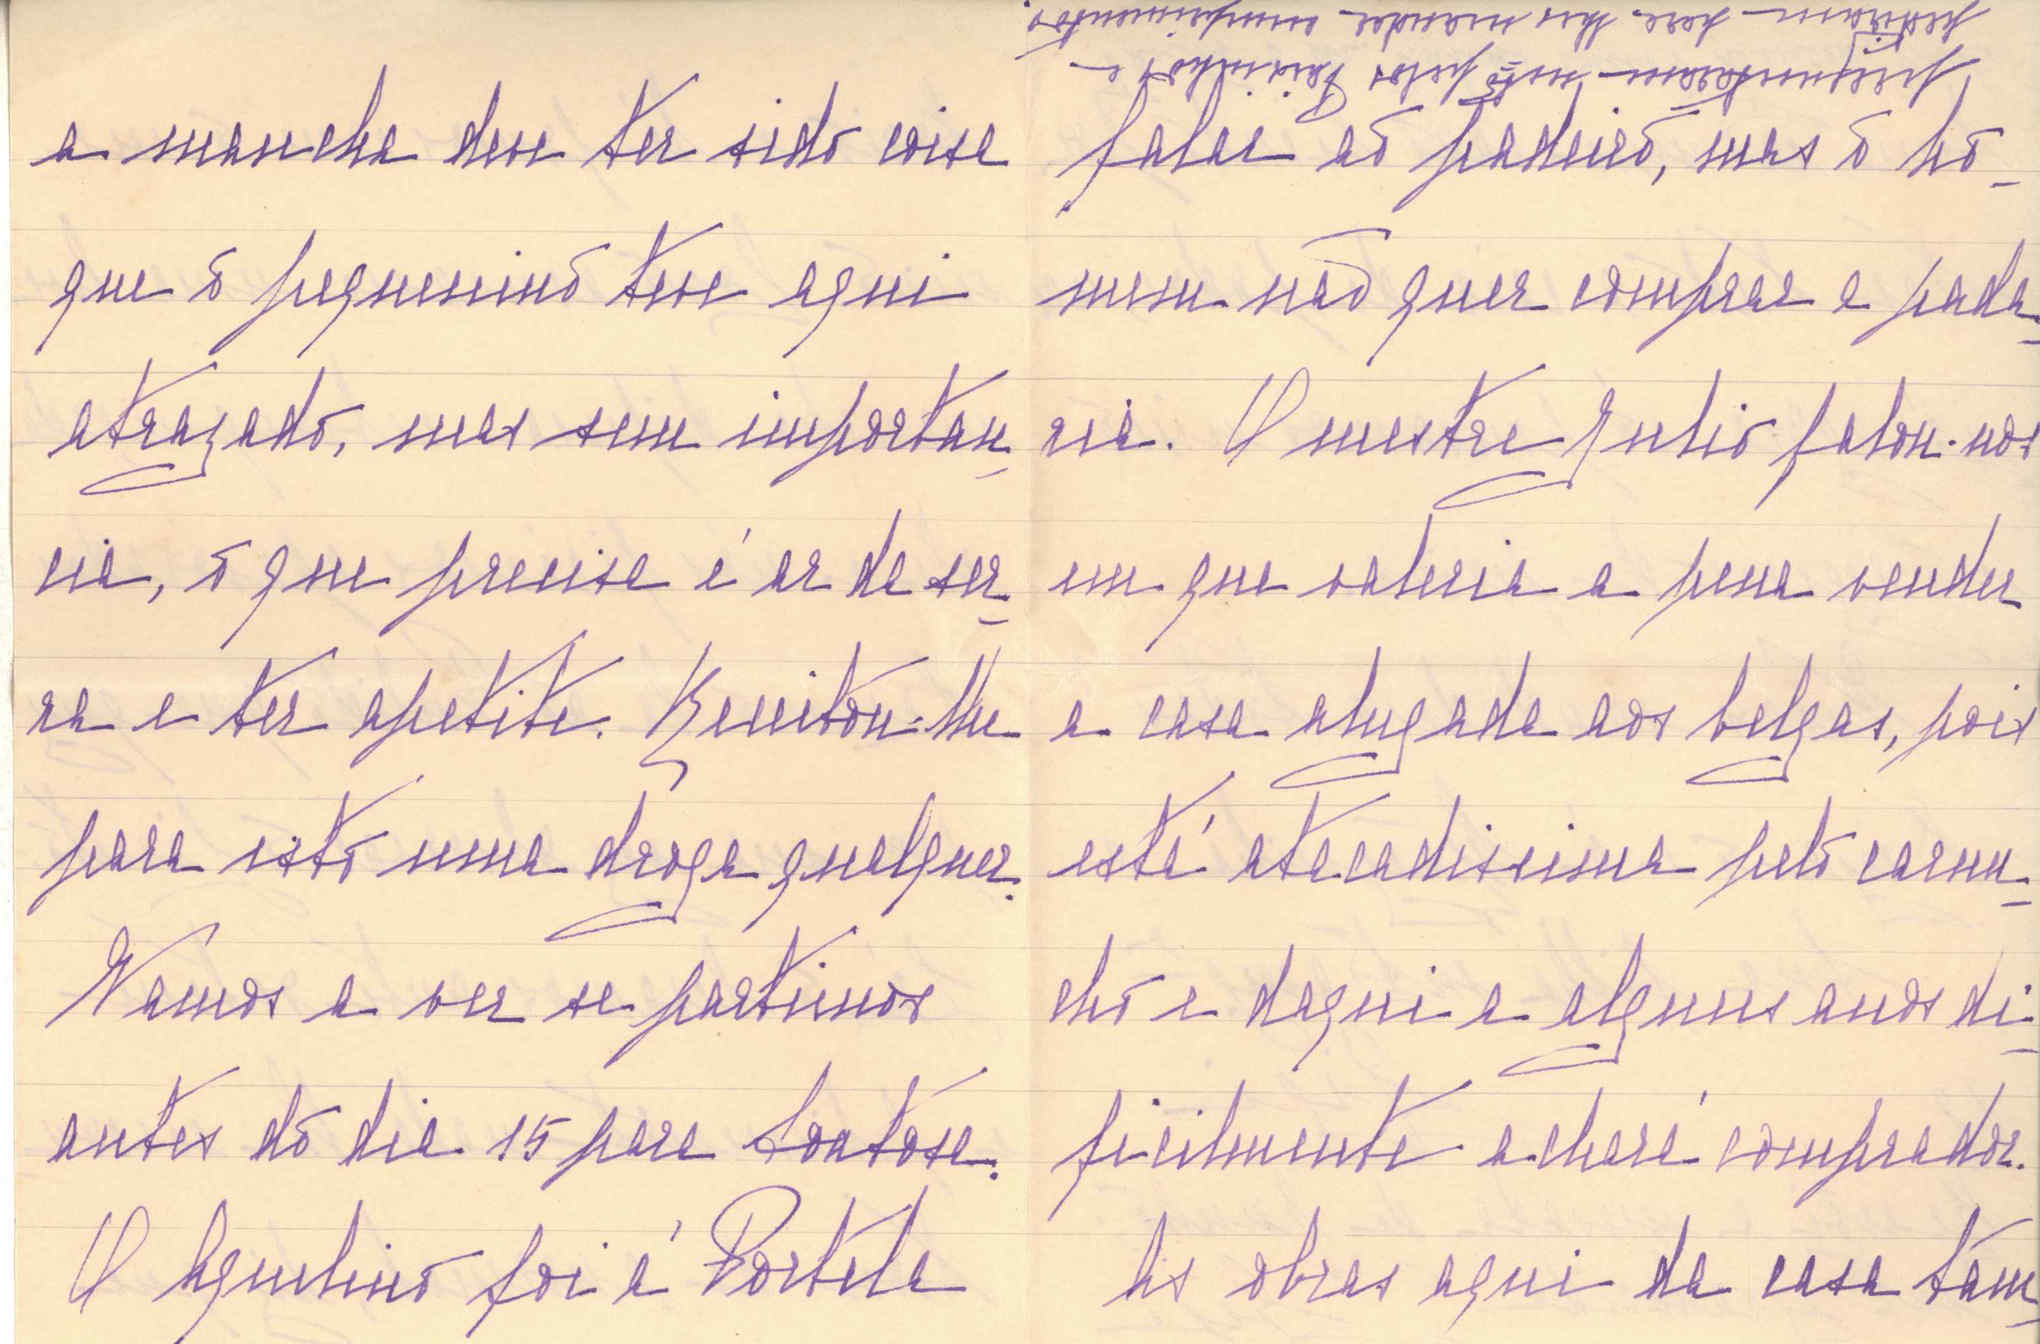 a mancha deve ter sido coisa
que o pequenino teve aqui
atrazado, mas sem importan-
cia, o que precisa é ar da ser-
ra e ter apetite. Receitou-lhe
para isto uma droga qualquer.
Vamos a ver se partimos
antes do dia 15 para
O Aquelino foi á Portela
falar ao padeiro, mas o ho-
mem não quer comprar a pada-
ria. O mestre Julio falou-nos
em que valeria a pena vender
a casa alugada aos belgas, pois
está atacadissima pelo carun-
cho e daqui a alguns anos di-
ficilmente achará comprador.
As obras aqui da casa tam-
perguntaram muito pelos Paisinhos e
pediram para lhes mandar cumprimentos.